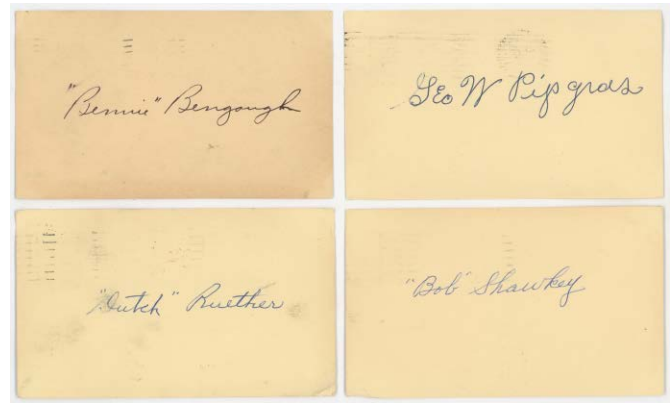 "Bennie" Bengough
Geo W Pipgras
"Dutch" Ruether
"Bob" Shawkey